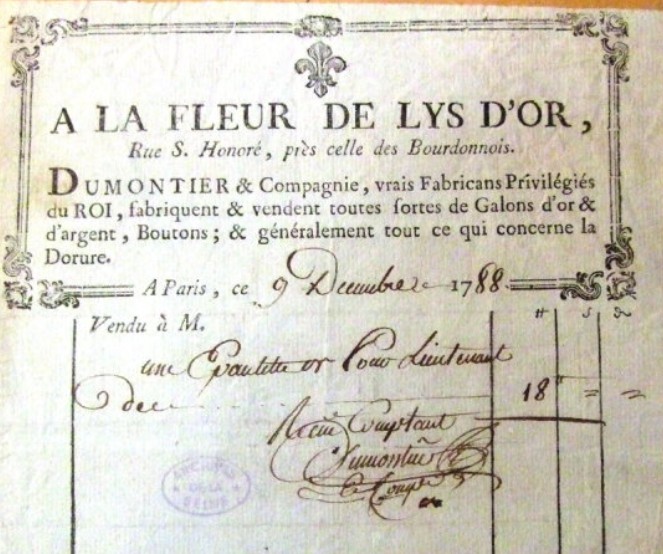 A LA FLEUR DE LYS D'OR,
Rue S. Honoré, près celle des Bourdonnois.
DUMONTIER & Compagnie, vrais Fabricans Privilégiés
du ROI, fabriquent & vendent toutes sortes de Galons d'or &
d'argent, Boutons; & généralement tout ce qui concerne la
Dorure.
A Paris, ce 9 Decembre 1788.
Vendu à M.
une Epaulette or Pour Lieutenant
18
Recu Comptant
Dumontier
& Compe
ARCHIVES
DE LA
SEINE